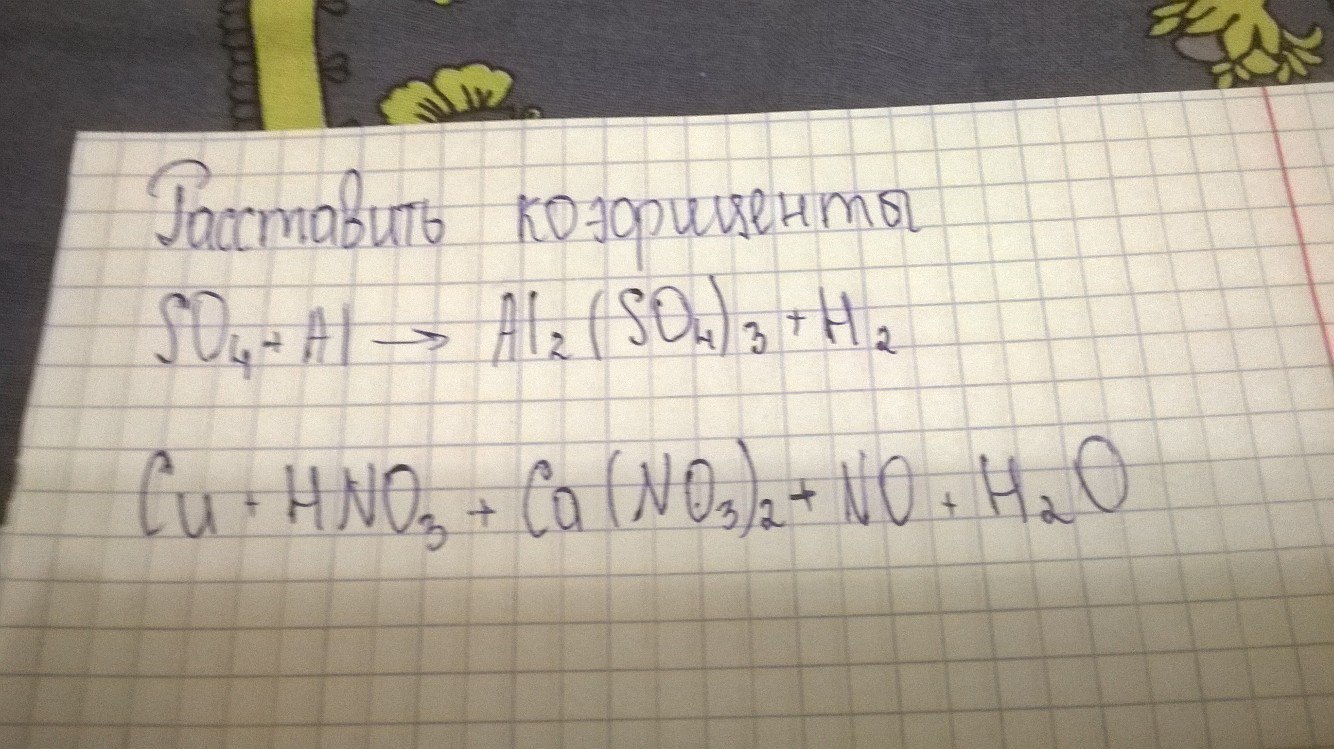 Расставить коэфрициенты
SO₄ + Al → Al₂(SO₄)₃ + H₂
Cu + HNO₃ + Ca(NO₃)₂ + NO + H₂O